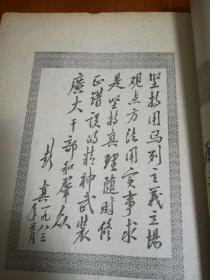 坚持用马列主義立場
观点方法用实事求
是坚持真理随时修
正错误的精神武装
廣大干部和羣众
彭真
一九八三年